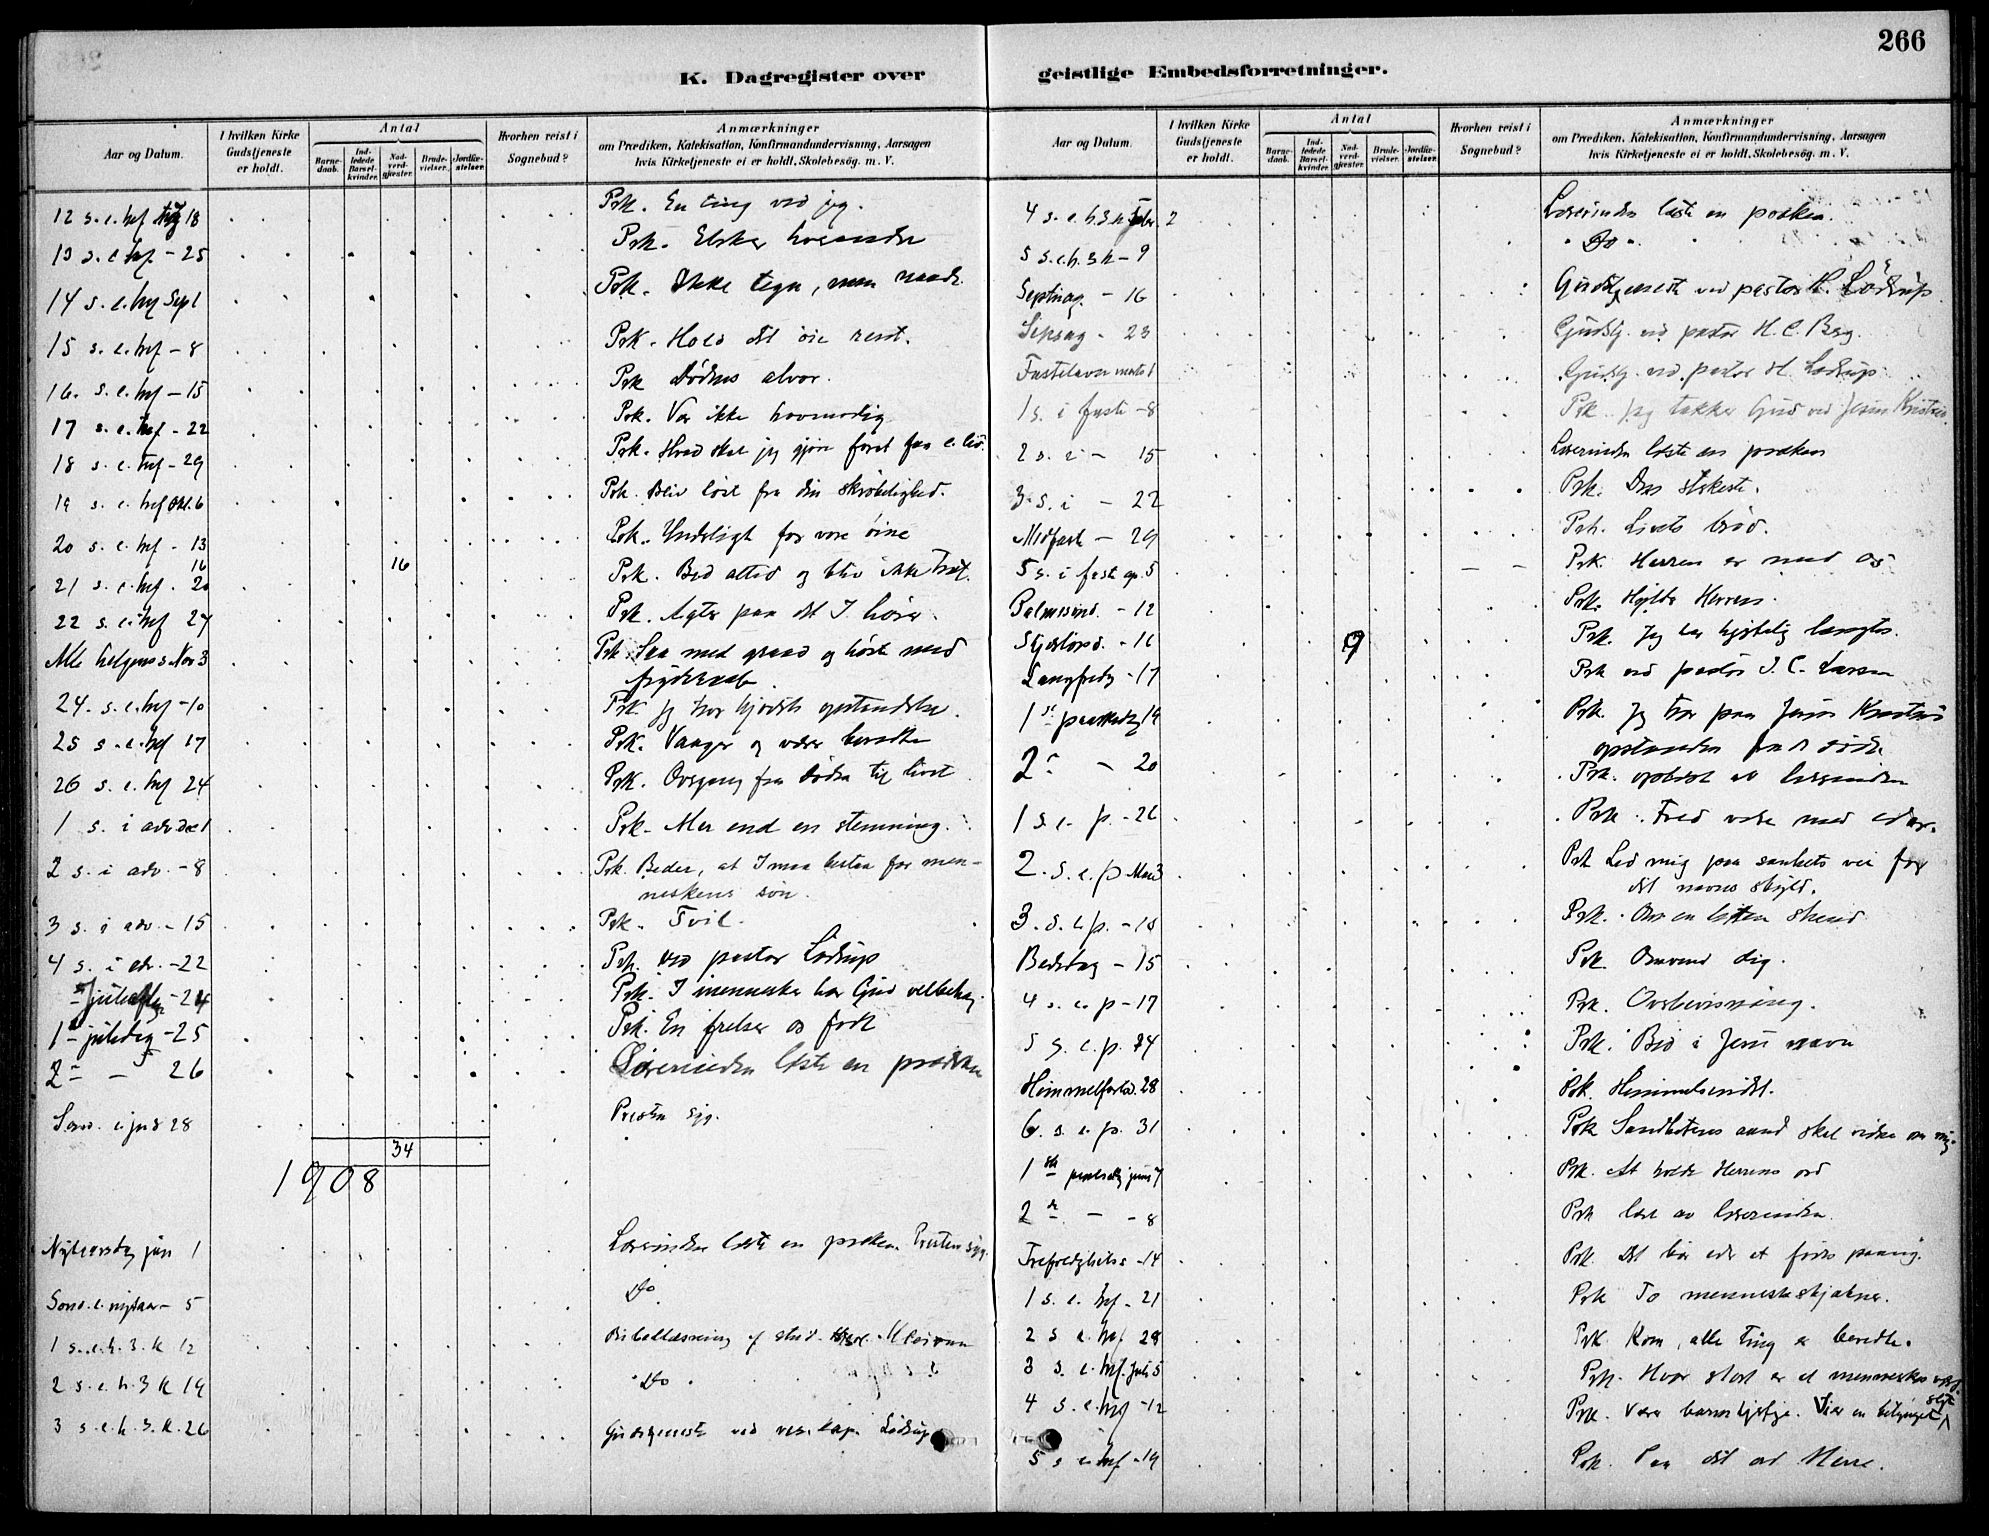 266
K. Dagregister over geistlige Embedsforretninger.
Aar og Datum.
I hvilken Kirke Gudstjeneste er holdt.
Antal
Barne-daab.
Ind-ledede Barsel-kvinder.
Nad-verd-gjæster.
Brude-vielser.
Jordfæ-stelser.
Hvorhen reist i Sognebud?
Anmærkninger
om Prædiken, Katekisation, Konfirmandundervisning, Aarsagen
hvis Kirketjeneste ei er holdt, Skolebesög. m. V.
12 s. e. hef Aug 18 Prk. En ting ved jeg.
13 s. e. hef. - 25 Prk. Elsker hverandre
14 s. e. hef Sept 1 Prk. Ikke tegn, men naade.
15 s. e. hef - 8 Prk. Hold dit öie rent.
16. s. e. hef - 15 Prk Dödens alvor.
17 s. e. hef - 22 Prk. Vær ikke hovmodig
18 s. e. hef - 29 Prk. Hvad skal jeg gjöre foret faa e. liv.
19 s. e. hef Okt. 6 Prk. Bliv löst fra din skröbelighed.
20 s. e. hef - 13 Prk. Underligt for vore öine
16 16
21 s. e. hef. 20 Prk. Bed altid og bliv ikke træt.
22 s. e. hef 27 Prk. Agter paa det I hörer.
Alle helgens s Nov 3 Prk. Saa med graad og höste med
fryderaab
24. s. e. hef - 10 Prk. Jeg tror kjödets opstandelse.
25 s. e. hef 17 Prk. Vaager og være beredte
26 s. e. hef 24 Prk. Overgang fra döden til livet
1 s. i adv dec 1 Prk. Mer end en stemning.
2 s. i adv. - 8 Prk. Beder, at I maa bestaa for men-
neskens sön.
3 s. i adv. - 15 Prk. Tvil.
4 s. i adv. - 22 Prk. ved pastor Lödrup
Juleaften - 24 Prk. I mennesker har Gud velbehag.
1ste juledag - 25 Prk. En frelser os födt
2den - 26 Lærerinden læste en prædiken
Sönd. e. jul 28 Presten syg.
34
1908
Nytaarsdag jan 1 Lærerinden læste en præken. Presten syg.
Sönd. e. nytaar - 5 Do
1 s. e. h. 3. k 12 Bibellæsning af stud.
2 s. e. h. 3 k 19 " Do "
3 s. e. h. 3. k. 26 Gudstjeneste ved res. kap. Lödrup
Aar og Datum.
I hvilken Kirke Gudstjeneste er holdt.
Antal
Barne-daab.
Ind-ledede Barsel-kvinder.
Nad-verd-gjæster.
Brude-vielser.
Jordfæ-stelser.
Hvorhen reist i Sognebud?
Anmærkninger
om Prædiken, Katekisation, Konfirmandundervisning, Aarsagen
hvis Kirketjeneste ei er holdt, Skolebesög. m. V.
4 s. e. h. 3 k Febr. 2 Lærerinden læste en præken.
5 s. e. h. 3 k - 9 " Do "
Septuag. - 16 Gudstjeneste ved pastor H. Lödrup
- 23 Gudstj. ved pastor H. C. Berg.
Fastelavn marts 1 Gudstj. ved pastor H Lödrup
1 s. i faste - 8 Prk. Jeg takker Gud ved Jesum Kristus
2 s. i - 15 Lærerinden læste en præken
3. s. i - 22 Prk. Den sterkeste.
Midfaste - 29 Prk. Livets bröd.
5 s. i faste ap. 5 Prk. Herren er med os
Palmesönd. - 12 Prk. Hylde Herren.
Skjærtorsd. - 16 9 Prk. Jeg har hjertelig længtes.
Langfredag - 17 Prk ved pastor J. C. Larsen
1ste paaskedag 19 Prk. Jeg tror paa Jesus Kristus
opstanden fra de döde
2den - 20 Prk. oplæst av lærerinden
1 s. e. p. - 26 Prk. Fred være med eder.
2. s. e. p Mai 3 Prk Led mig paa sanheds vei for
dit navns skyld.
3. s. e. p. - 10 Prk. Om en liten stund
Bededag - 15 Prk Omvend dig.
4 s. e. p - 17 Prk. Overbevisning.
5 s. e. p. 24 Prk. Bed i Jesu navn
Himmelfartsd. 28 Prk.
6. s. e. p. 31 Prk Sandhetens aand skal vidne om mig.
1ste pinsedag juni 7 Prk. At holde Herrens ord
2den - - 8 Prk læst av lærerinden.
Trefoldigheds s - 14 Prk. Det bör eder at födes paany.
1 s. e. hef - 21 Prk To menneskeskjæbner.
2 s e. hef 28 Prk Kom, alle ting er beredte.
3 s. e. hef. juli 5 Prk. Hvor stort er et menneskes værd.
4 s. e. hef - 12 Prk. Være barmhjertige. Vi er en benaadet slegt
5 s e. hef - 19 Prk. Paa dit ord Herre.